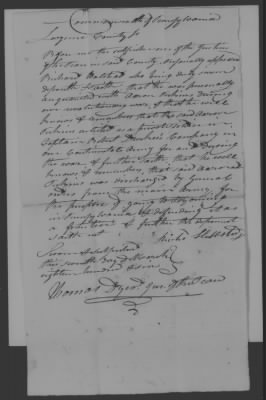 Commonwealth of Pennsylvania
Luzerne County Ss
Before me the subscriber one of the Justices
of the Peace in said County, personally appeared
Richard Halstead who being duly sworn
deposeth & saith that he was personally
acquainted with Aaron Perkins during
our revolutionary war, & that he well
knows & remembers that the said Aaron
Perkins enlisted as a private soldier in
Captain Company in
our Continental Army for and During
the war, & further saith that he well
knows & remembers, that said Aaron
Perkins was discharged by General
orders from the main Army, for
the purpose of going to Wyoming
in Pennsylvania & defending it as
a frontier & further this deponent
saith not
Sworn & subscribed
this Day of March
eighteen hundred
Thomas Dyer Jus. of the Peace